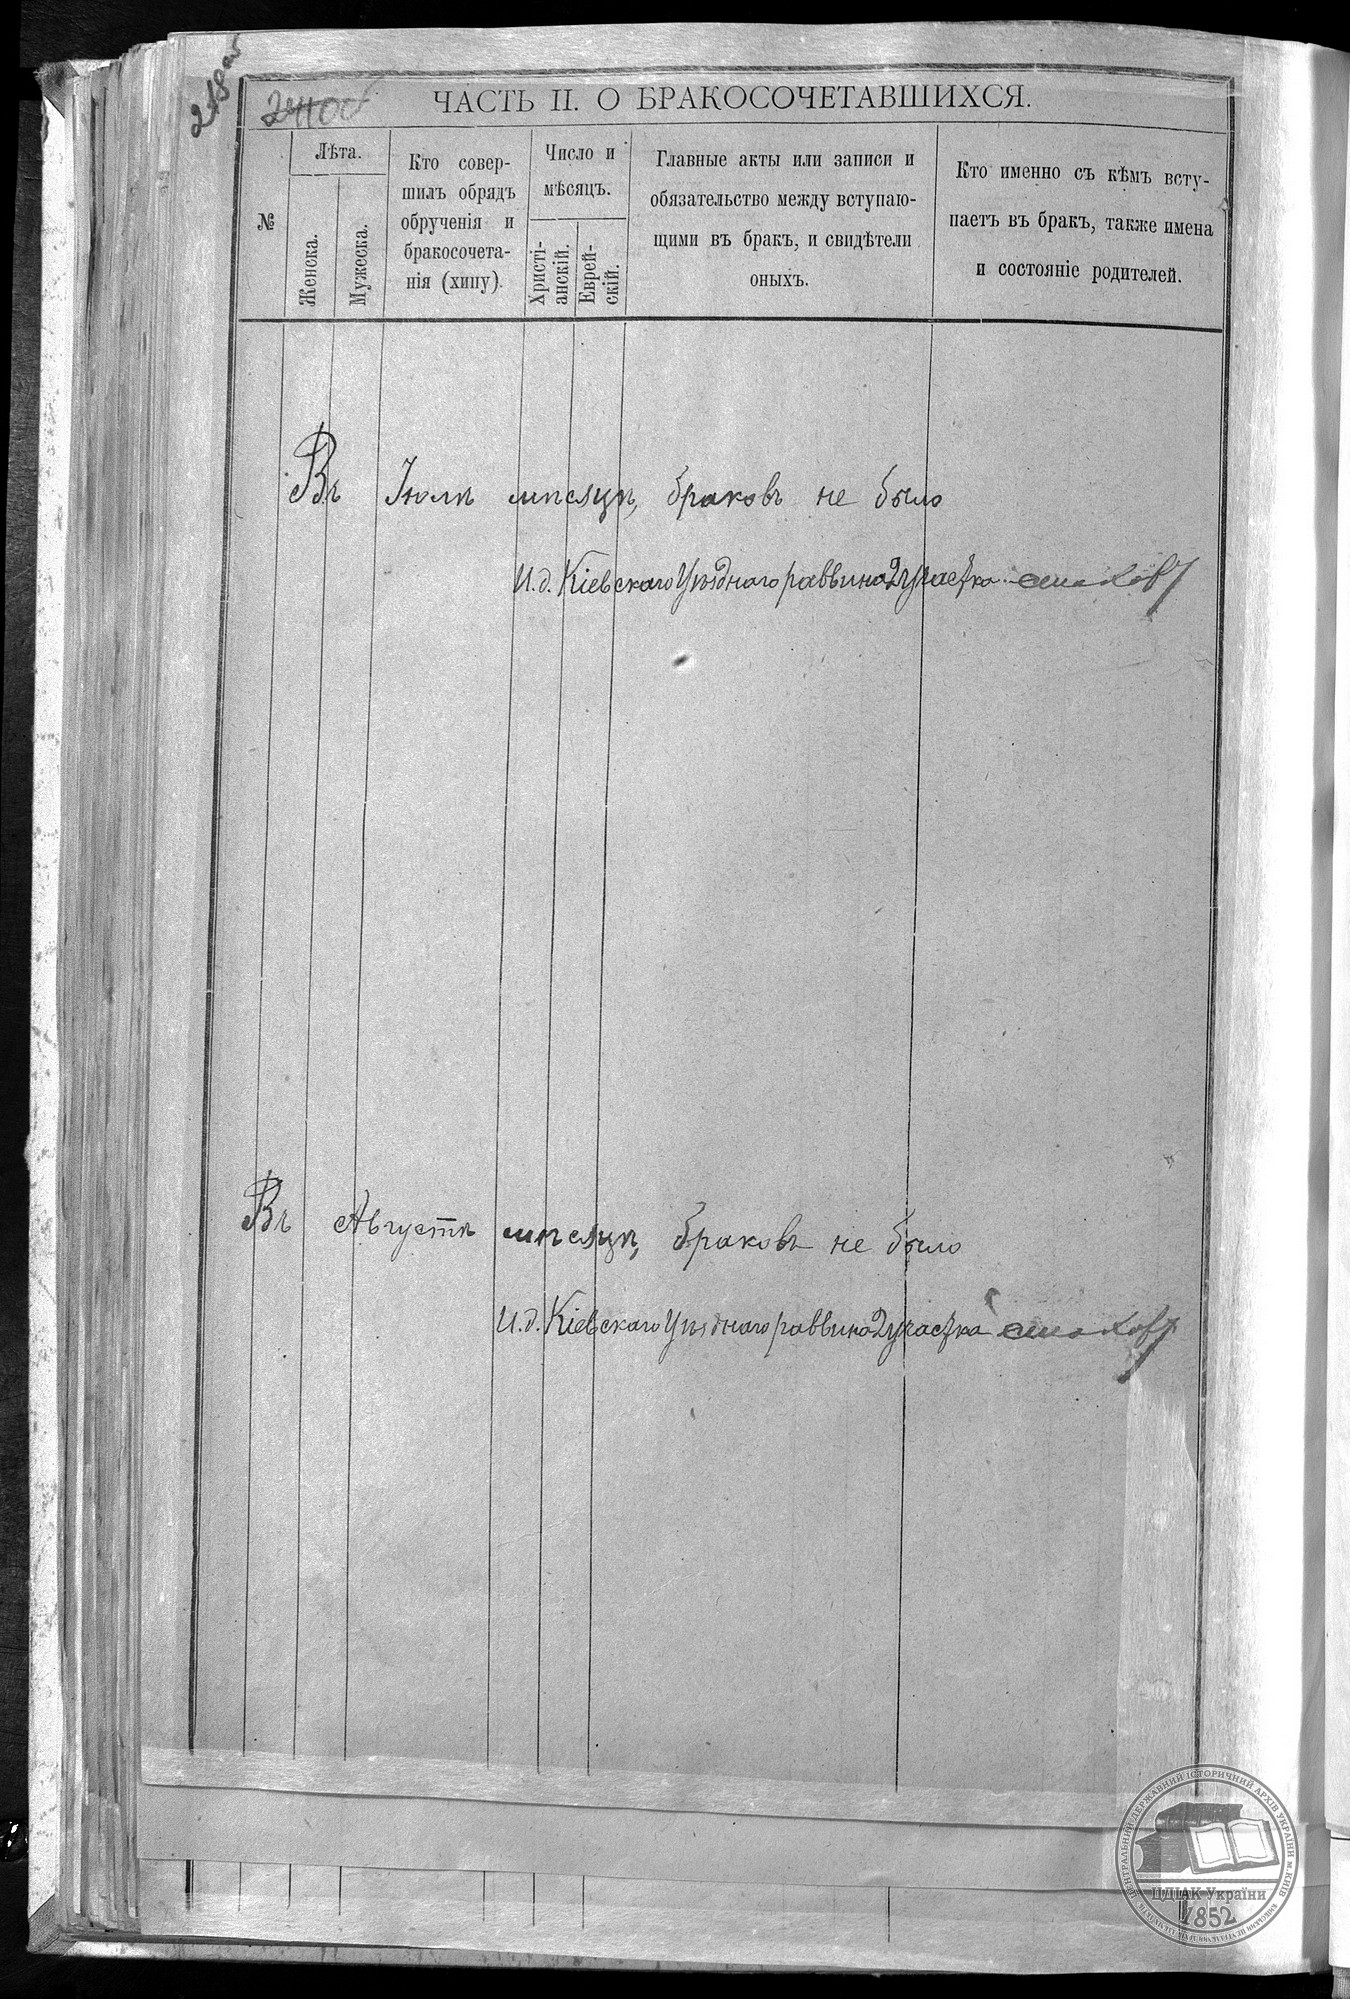 218об
240об
ЧАСТЬ II. О БРАКОСОЧЕТАВШИХСЯ.
№
Лѣта.
Женска.
Мужеска.
Кто совер-
шилъ обрядъ
обрученія и
бракосочета-
нія (хипу).
Число и
мѣсяцъ.
Христі-
анскій.
Еврей-
скій.
Главные акты или записи и
обязательство между вступаю-
щими въ бракъ, и свидѣтели
оныхъ.
Кто именно съ кѣмъ всту-
паетъ въ бракъ, также имена
и состояніе родителей.
Въ Іюлѣ мѣсяцѣ, браковъ не было
И.д. Кіевскаго Уѣзднаго раввина 2 участка
Въ Августѣ мѣсяцѣ, браковъ не было
И.д. Кіевскаго Уѣзднаго раввина 2 участка
ЦЕНТРАЛЬНИЙ ДЕРЖАВНИЙ ІСТОРИЧНИЙ АРХІВ УКРАЇНИ м. КИЇВ
ЦДІАК України
1852